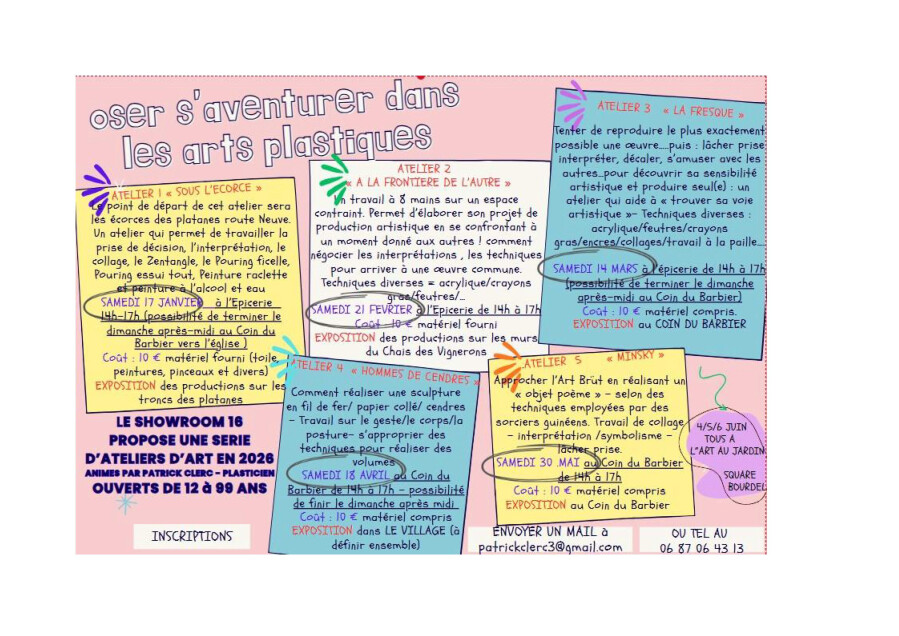 oser s'aventurer dans
les arts plastiques
ATELIER 1 « SOUS L'ECORCE »
Le point de départ de cet atelier sera
les écorces des platanes route Neuve.
Un atelier qui permet de travailler la
prise de décision, l'interprétation, le
collage, le Zentangle, le Pouring ficelle,
Pouring essui tout, Peinture raclette
et peinture à l'alcool et eau
SAMEDI 17 JANVIER à l'Epicerie
14h-17h (possibilité de terminer le
dimanche après-midi au Coin du
Barbier vers l'église )
Coût : 10 € matériel fourni (toile,
peintures, pinceaux et divers)
EXPOSITION des productions sur les
troncs des platanes
ATELIER 2
« A LA FRONTIERE DE L'AUTRE »
Un travail à 8 mains sur un espace
contraint. Permet d'élaborer son projet de
production artistique en se confrontant à
un moment donné aux autres ! comment
négocier les interprétations , les techniques
pour arriver à une œuvre commune.
Techniques diverses = acrylique/crayons
gras/feutres/...
SAMEDI 21 FEVRIER à l'Epicerie de 14h à 17h
Coût : 10 € matériel fourni
EXPOSITION des productions sur les murs
du Chais des Vignerons
ATELIER 3 « LA FRESQUE »
Tenter de reproduire le plus exactement
possible une œuvre....puis : lâcher prise
interpréter, décaler, s'amuser avec les
autres...pour découvrir sa sensibilité
artistique et produire seul(e) : un
atelier qui aide à « trouver sa voie
artistique »- Techniques diverses :
acrylique/feutres/crayons
gras/encres/collages/travail à la paille....
SAMEDI 14 MARS à l'épicerie de 14h à 17h
(possibilité de terminer le dimanche
après-midi au Coin du Barbier)
Coût : 10 € matériel compris.
EXPOSITION au COIN DU BARBIER
ATELIER 4 « HOMMES DE CENDRES »
Comment réaliser une sculpture
en fil de fer/ papier collé/ cendres
- Travail sur le geste/le corps/la
posture- s'approprier des
techniques pour réaliser des
volumes
SAMEDI 18 AVRIL au Coin du
Barbier de 14h à 17h - possibilité
de finir le dimanche après midi
Coût : 10 € matériel compris
EXPOSITION dans LE VILLAGE (à
définir ensemble)
ATELIER 5 « MINSKY »
Approcher l'Art Brüt en réalisant un
« objet poème » - selon des
techniques employées par des
sorciers guinéens. Travail de collage
- interprétation /symbolisme -
lâcher prise.
SAMEDI 30 .MAI au Coin du Barbier
de 14h à 17h
Coût : 10 € matériel compris
EXPOSITION au Coin du Barbier
4/5/6 JUIN
TOUS A
L"ART AU JARDIN
SQUARE
BOURDEL
LE SHOWROOM 16
PROPOSE UNE SERIE
D'ATELIERS D'ART EN 2026
ANIMES PAR PATRICK CLERC - PLASTICIEN
OUVERTS DE 12 à 99 ANS
INSCRIPTIONS
ENVOYER UN MAIL à
patrickclerc3@gmail.com
OU TEL AU
06 87 06 43 13